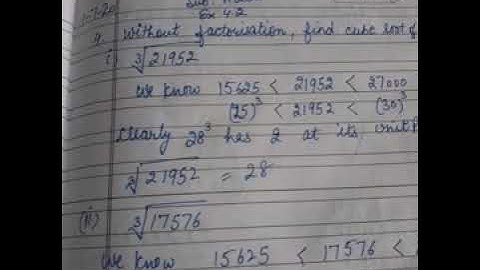 Ex 4.2
9. Without factorisation, find cube root of
i) ∛21952
We know 15625 < 21952 < 27000
(25)³ < 21952 < (30)³
Clearly 28³ has 2 at its unit
∛21952 = 28
(ii) ∛17576
We know 15625 < 17576 <